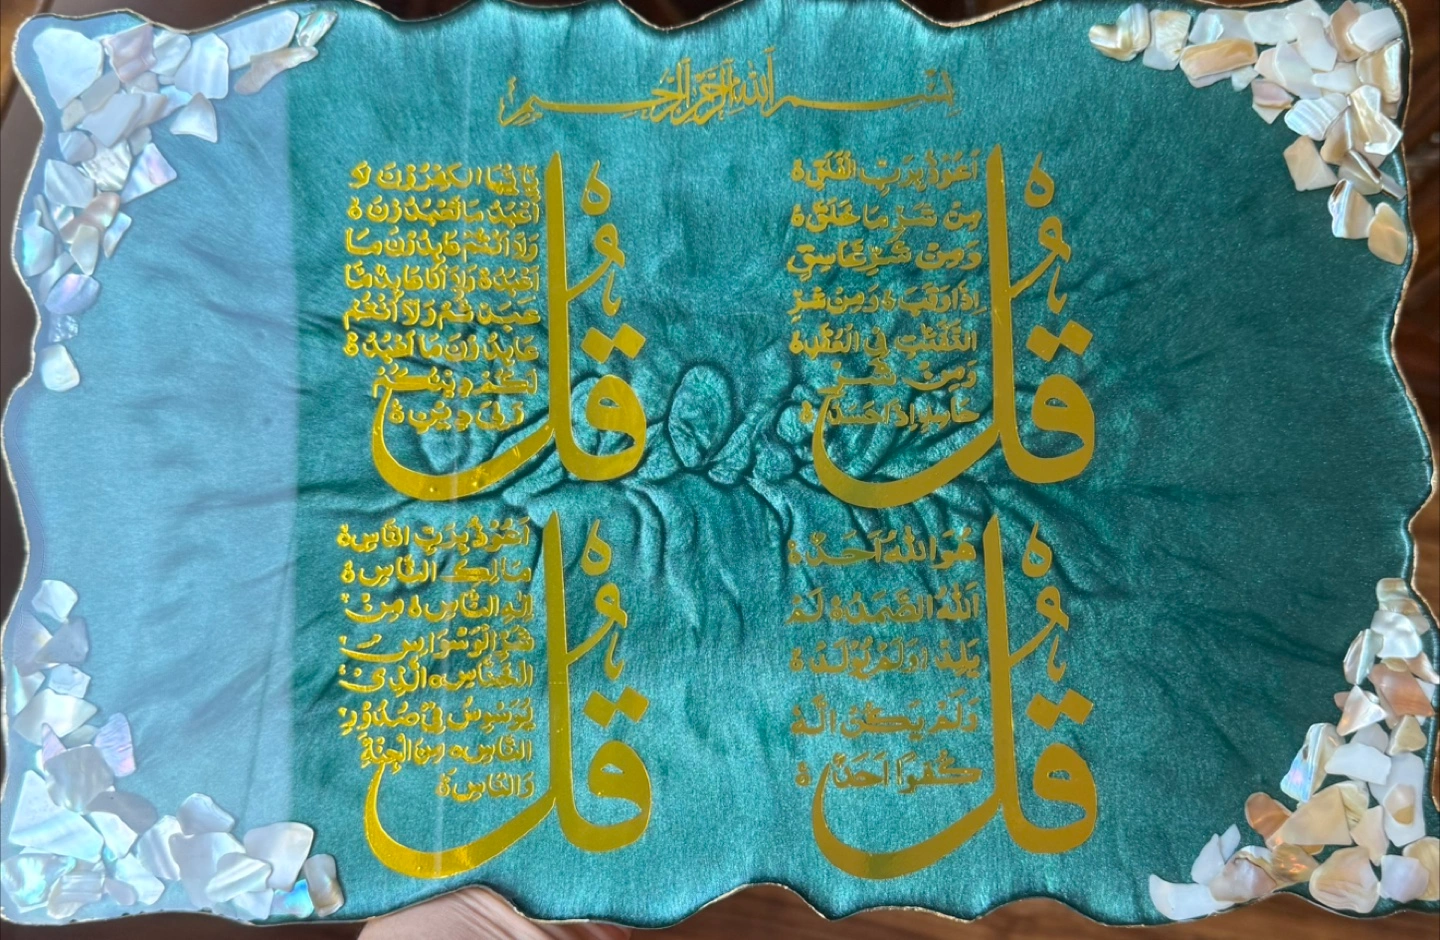 بسم الله الرحمن الرحيم
قُل
أَعُوذُ بِرَبِّ الْفَلَقِ ۝
مِنْ شَرِّ مَا خَلَقَ ۝
وَمِنْ شَرِّ غَاسِقٍ
إِذَا وَقَبَ ۝ وَمِنْ شَرِّ
النَّفّٰثٰتِ فِي الْعُقَدِ ۝
وَمِنْ شَرِّ
حَاسِدٍ إِذَا حَسَدَ ۝
قُل
يٰٓأَيُّهَا الْكٰفِرُوْنَ لَا
أَعْبُدُ مَا تَعْبُدُوْنَ ۝
وَلَا أَنْتُمْ عَابِدُوْنَ مَا
أَعْبُدُ ۝ وَلَا أَنَا عَابِدٌ مَّا
عَبَدْتُّمْ وَلَا أَنْتُمْ
عَابِدُوْنَ مَا أَعْبُدُ ۝
لَكُمْ دِيْنُكُمْ
وَلِيَ دِيْنِ ۝
قُل
هُوَ اللهُ أَحَدٌ ۝
اَللهُ الصَّمَدُ ۝ لَمْ
يَلِدْ وَلَمْ يُوْلَدْ ۝
وَلَمْ يَكُنْ لَّهُ
كُفُوًا أَحَدٌ ۝
قُل
أَعُوْذُ بِرَبِّ النَّاسِ ۝
مَالِكِ النَّاسِ ۝
إِلٰهِ النَّاسِ ۝ مِنْ
شَرِّ الْوَسْوَاسِ
الْخَنَّاسِ ۝ الَّذِيْ
يُوَسْوِسُ فِيْ صُدُوْرِ
النَّاسِ ۝ مِنَ الْجِنَّةِ
وَالنَّاسِ ۝